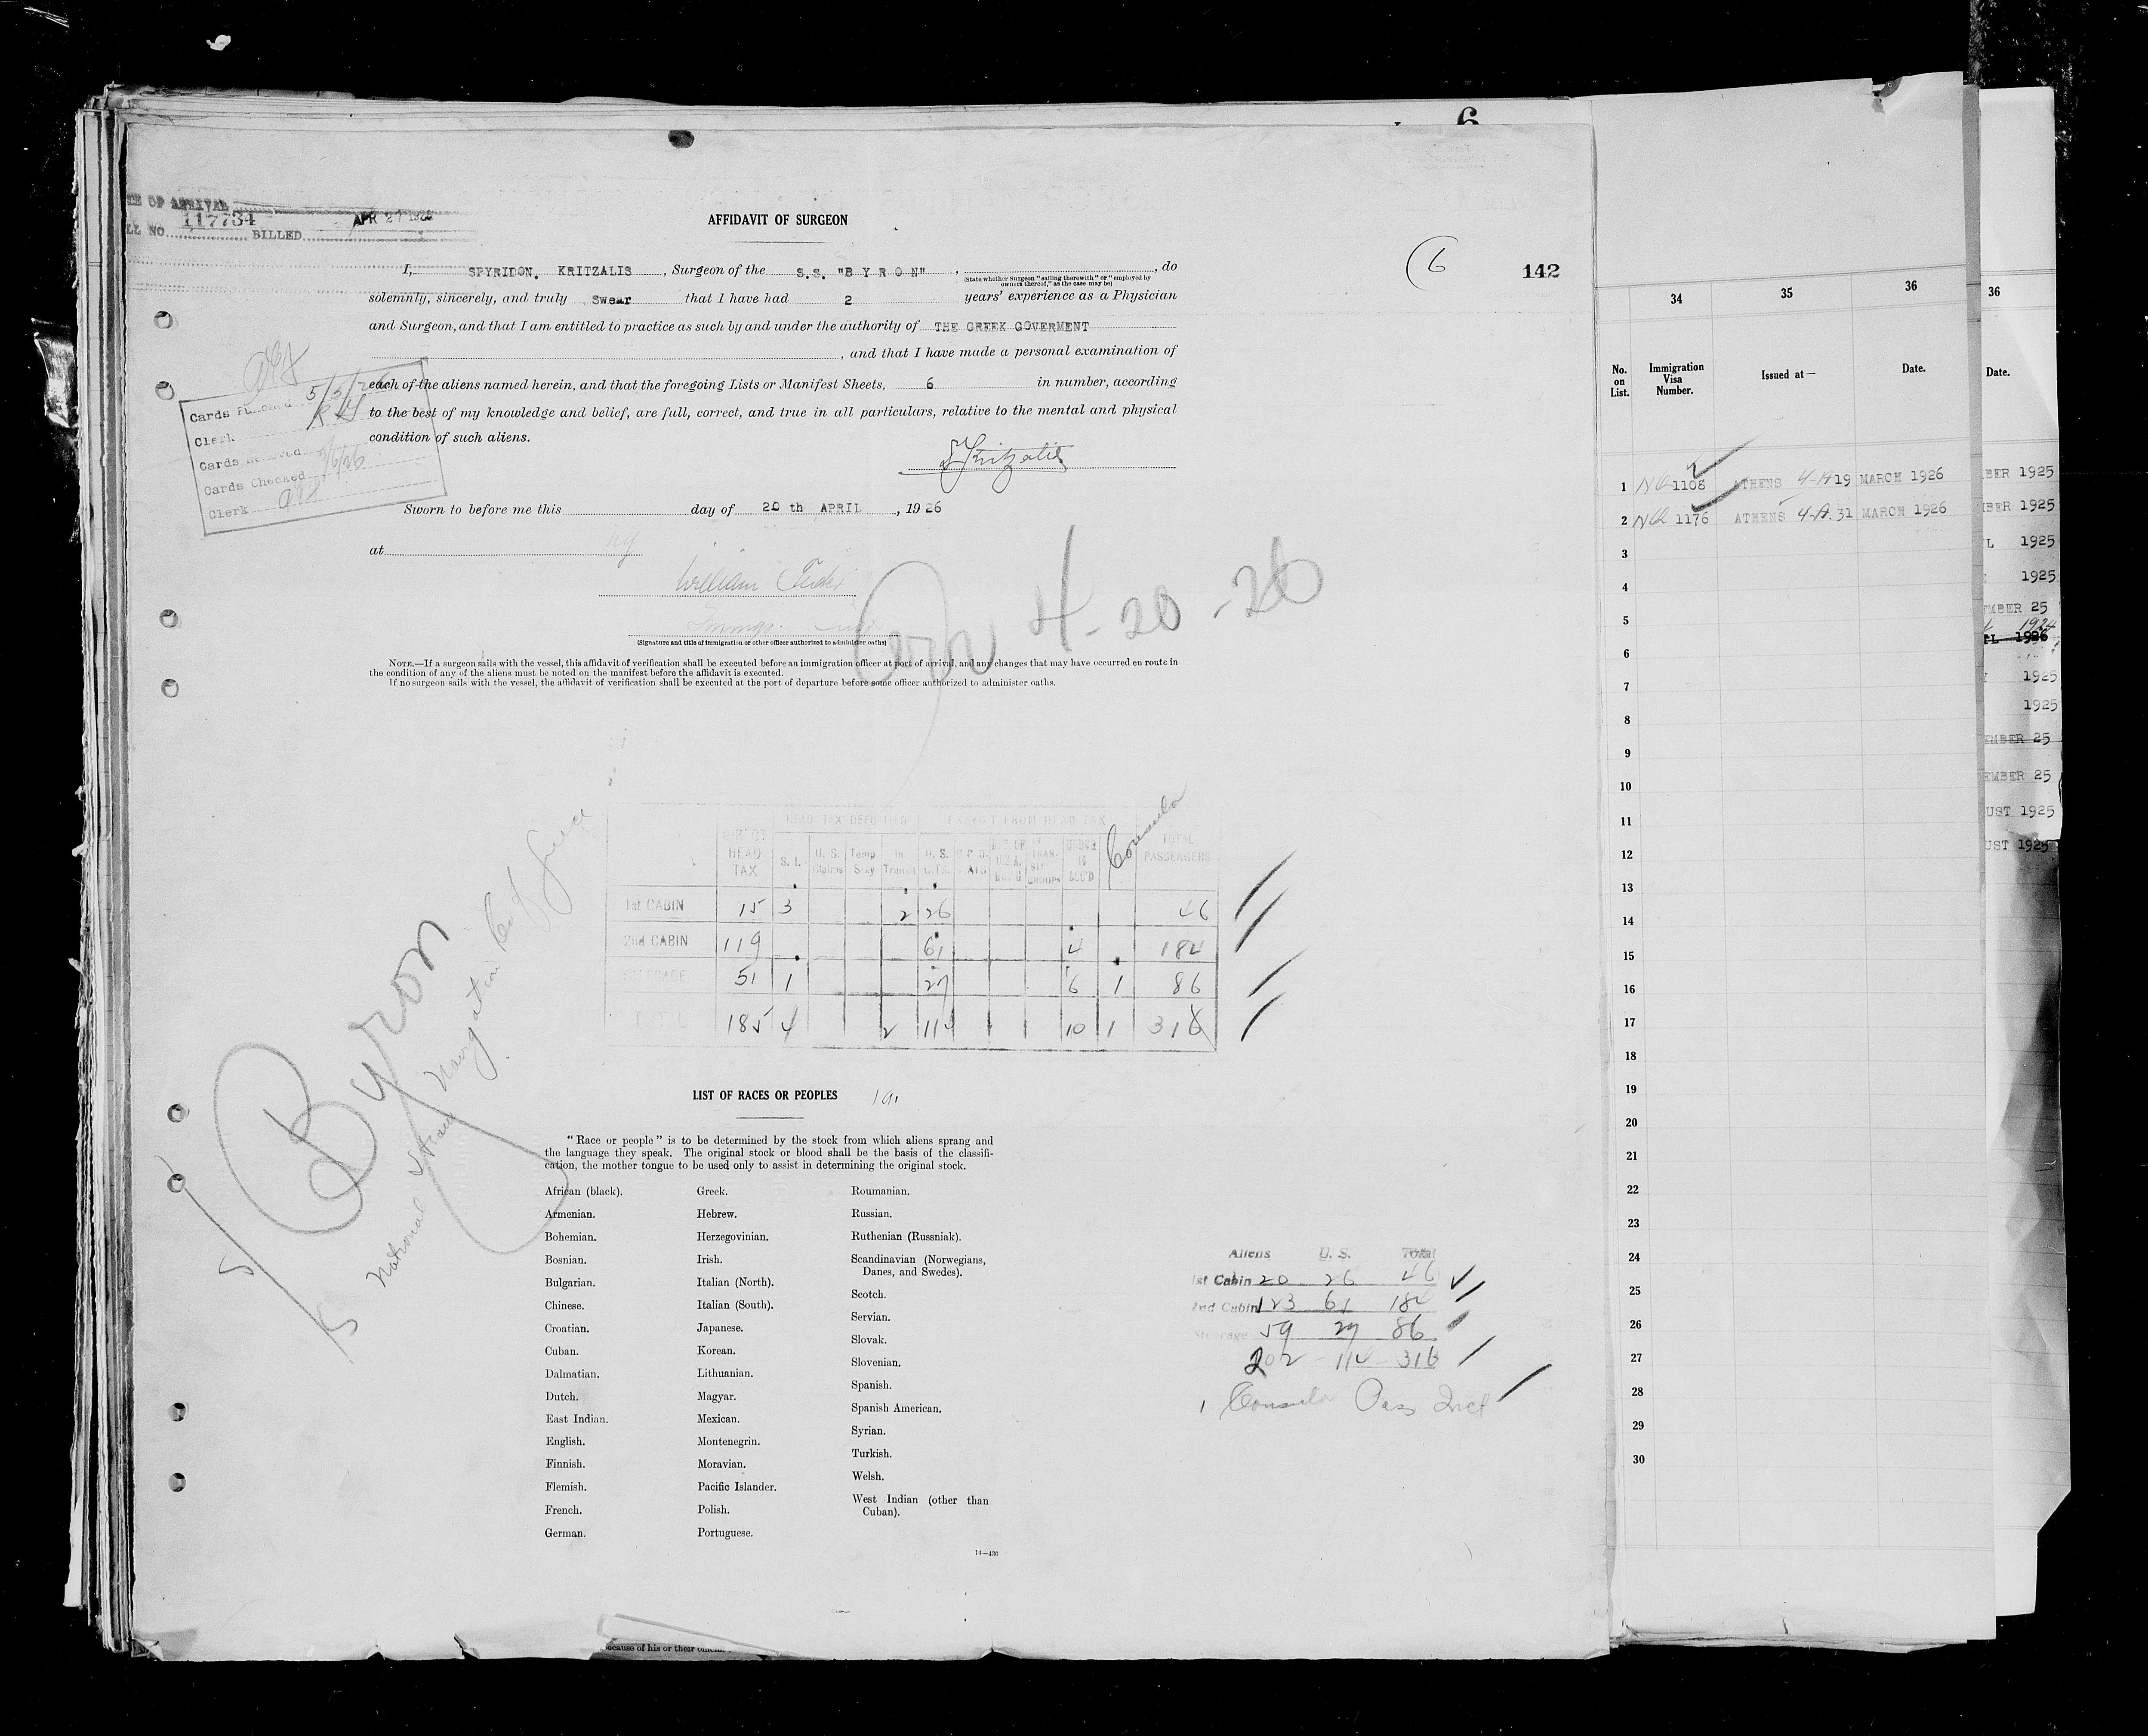 6
TE OF ARRIVAL
LL NO. 117734 BILLED APR 27 192
AFFIDAVIT OF SURGEON
6
142
I, SPYRIDON. KRITZALIS, Surgeon of the S.S. "B Y R O N", , do
(State whether Surgeon "sailing therewith" or "employed by owners thereof," as the case may be)
solemnly, sincerely, and truly Swear that I have had 2 years' experience as a Physician
and Surgeon, and that I am entitled to practice as such by and under the authority of THE GREEK GOVERMENT
, and that I have made a personal examination of
each of the aliens named herein, and that the foregoing Lists or Manifest Sheets, 6 in number, according
to the best of my knowledge and belief, are full, correct, and true in all particulars, relative to the mental and physical
condition of such aliens.
Cards Punched 5/5/26
Clerk
Cards
Cards Checked 5/6/26
Clerk
S Kritzalis
Sworn to before me this day of 20 th APRIL, 1926
at ny
William
(Signature and title of immigration or other officer authorized to administer oaths)
4-20-26
NOTE.—If a surgeon sails with the vessel, this affidavit of verification shall be executed before an immigration officer at port of arrival, and any changes that may have occurred en route in
the condition of any of the aliens must be noted on the manifest before the affidavit is executed.
If no surgeon sails with the vessel, the affidavit of verification shall be executed at the port of departure before some officer authorized to administer oaths.
HEAD TAX DEPOSITED EXEMPT FROM HEAD TAX
DIRECT HEAD TAX S. I. U. S. Claims Temp. Stay In Transit U. S. CITS. TRANSIT GROUPS UNDER 16 ACC'D Consula TOTAL PASSENGERS
1st CABIN 15 3 2 26 46
2nd CABIN 119 61 4 184
STEERAGE 51 1 27 6 1 86
TOTAL 185 4 2 114 10 1 316
Byron
National Steam Navigation Co of Greece
LIST OF RACES OR PEOPLES
"Race or people" is to be determined by the stock from which aliens sprang and
the language they speak. The original stock or blood shall be the basis of the classifi-
cation, the mother tongue to be used only to assist in determining the original stock.
African (black).
Armenian.
Bohemian.
Bosnian.
Bulgarian.
Chinese.
Croatian.
Cuban.
Dalmatian.
Dutch.
East Indian.
English.
Finnish.
Flemish.
French.
German.
Greek.
Hebrew.
Herzegovinian.
Irish.
Italian (North).
Italian (South).
Japanese.
Korean.
Lithuanian.
Magyar.
Mexican.
Montenegrin.
Moravian.
Pacific Islander.
Polish.
Portuguese.
Roumanian.
Russian.
Ruthenian (Russniak).
Scandinavian (Norwegians,
Danes, and Swedes).
Scotch.
Servian.
Slovak.
Slovenian.
Spanish.
Spanish American.
Syrian.
Turkish.
Welsh.
West Indian (other than
Cuban).
14—430
Aliens U. S. Total
1st Cabin 20 26 46
2nd Cabin 123 61 184
Steerage 59 27 86
202 - 114 - 316
1 Consula Pass Incl
ecause of his or their
34 35 36
No. on List. Immigration Visa Number. Issued at— Date.
1 NQ 1108 ATHENS 4-A 19 MARCH 1926
2 NQ 1176 ATHENS 4-A. 31 MARCH 1926
3
4
5
6
7
8
9
10
11
12
13
14
15
16
17
18
19
20
21
22
23
24
25
26
27
28
29
30
36
Date.
BER 1925
BER 1925
L 1925
1925
MBER 25
1924
IL 1926
1925
1925
EMBER 25
EMBER 25
UST 1925
UST 1925